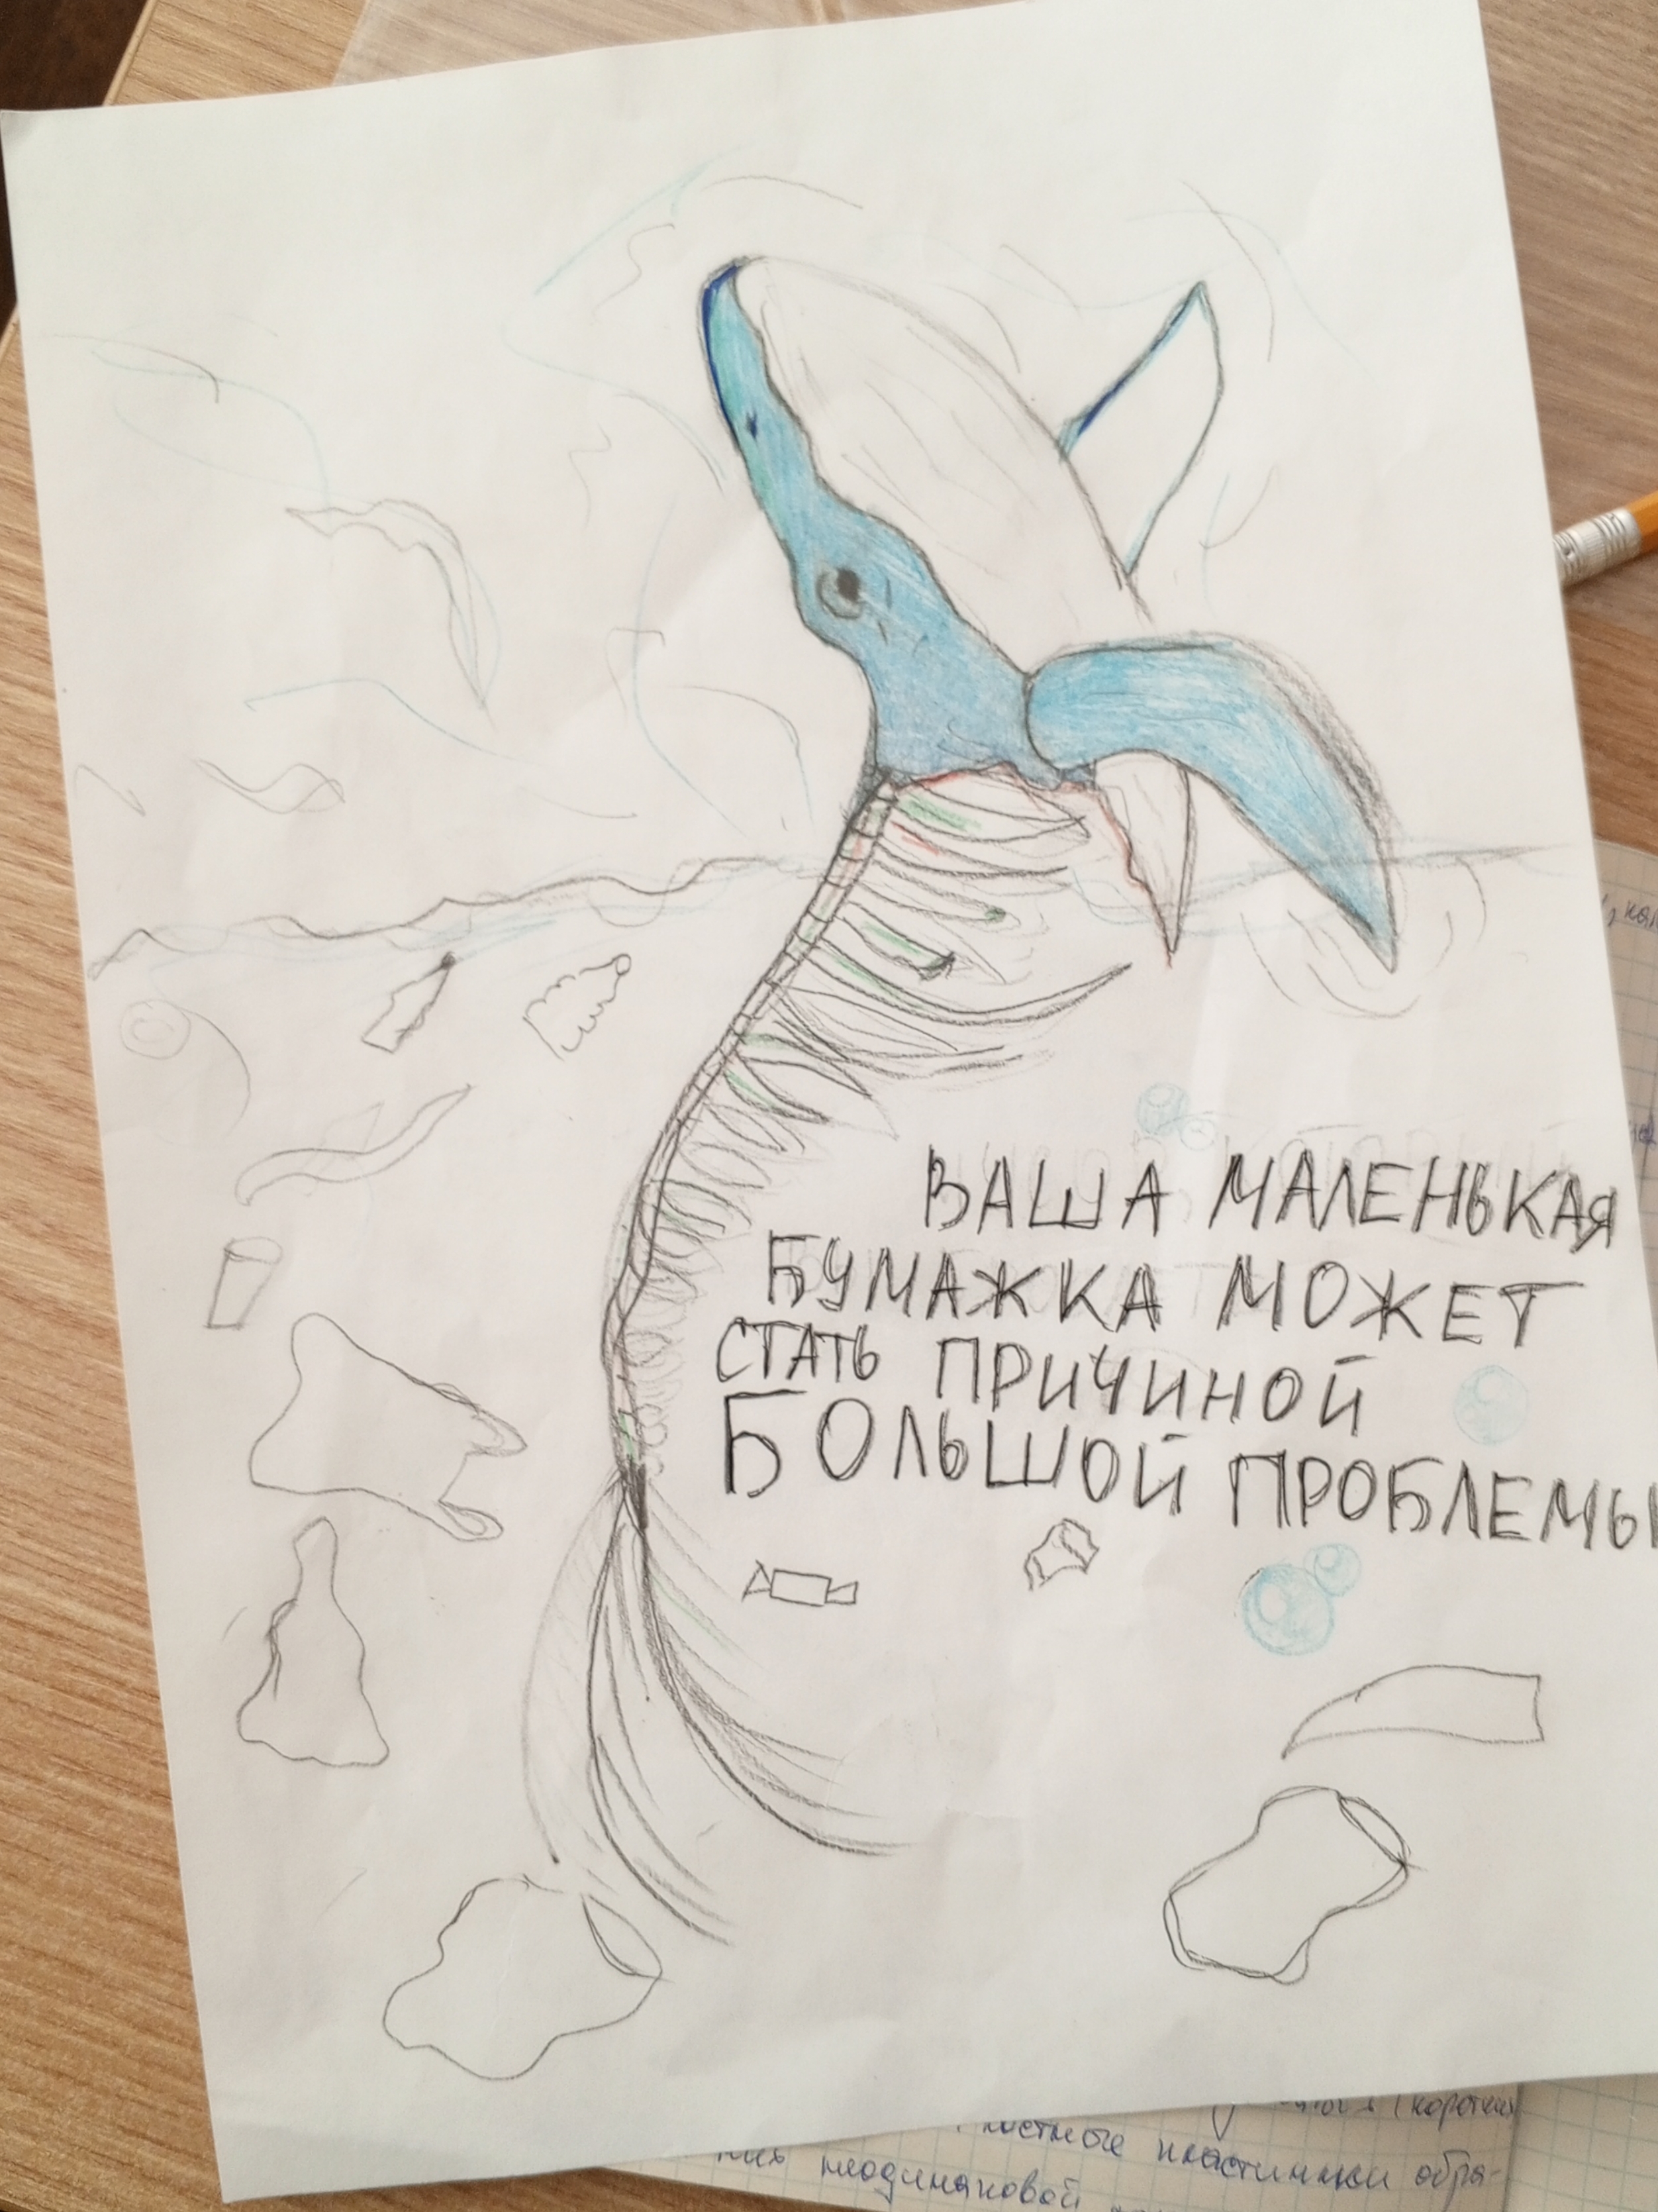 ВАША МАЛЕНЬКАЯ
БУМАЖКА МОЖЕТ
СТАТЬ ПРИЧИНОЙ
БОЛЬШОЙ ПРОБЛЕМЫ
костные пластинки обра-
неодинаковой